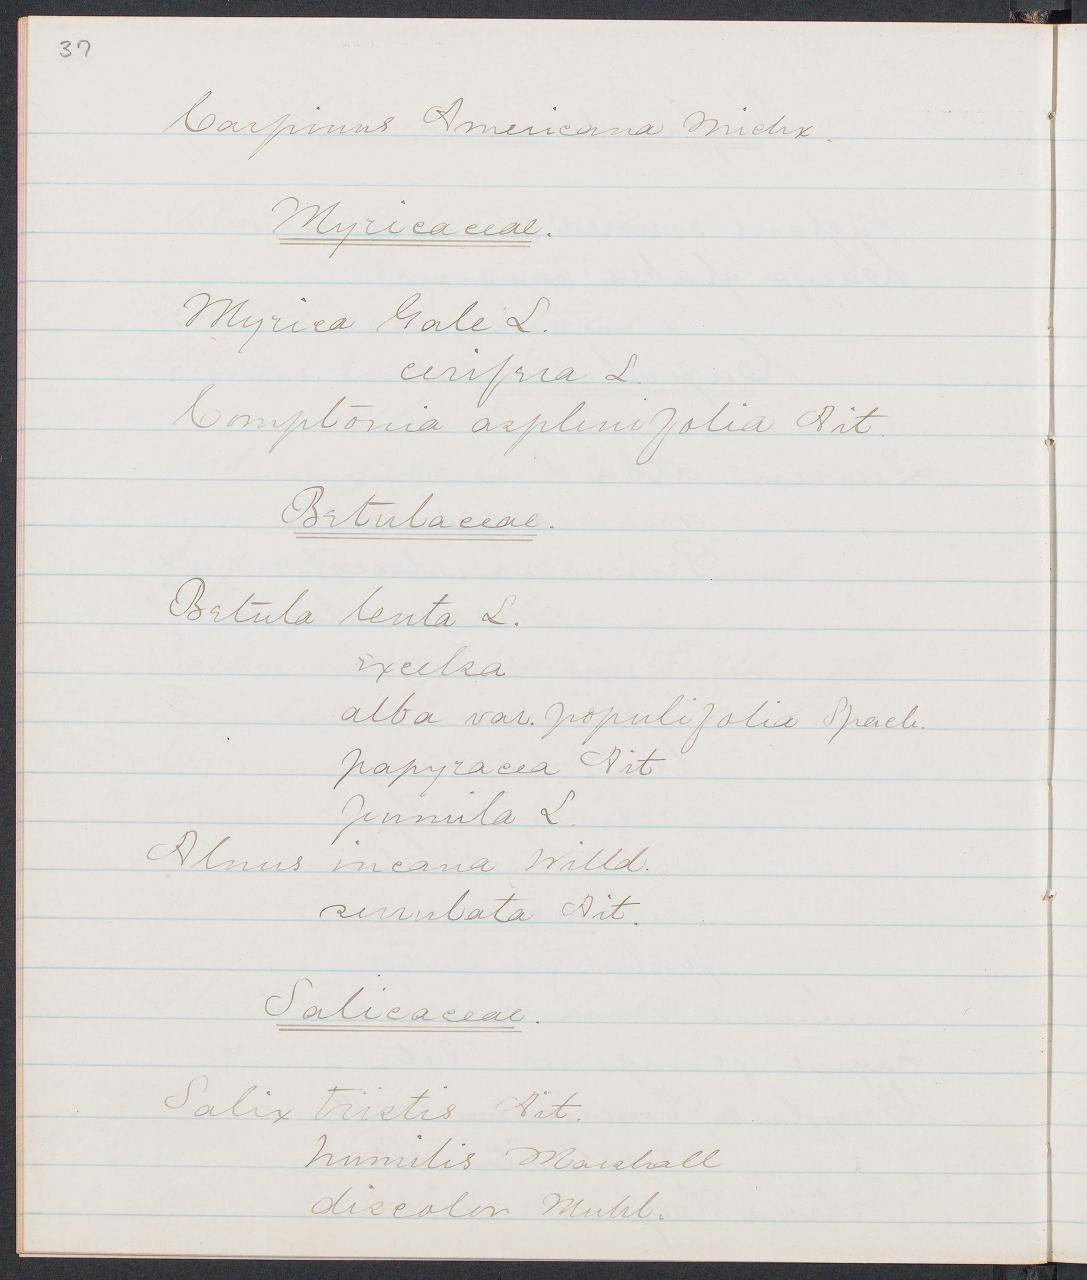 37
Carpinus Americana Michx.
Myricaceae.
Myrica Gale L.
cerifera L.
Comptonia asplenifolia Ait.
Betulaceae.
Betula lenta L.
excelsa
alba var. populifolia Spach.
papyracea Ait
pumila L.
Alnus incana Willd.
serrulata Ait.
Salicaceae.
Salix tristis Ait.
humilis Marshall
discolor Muhl.